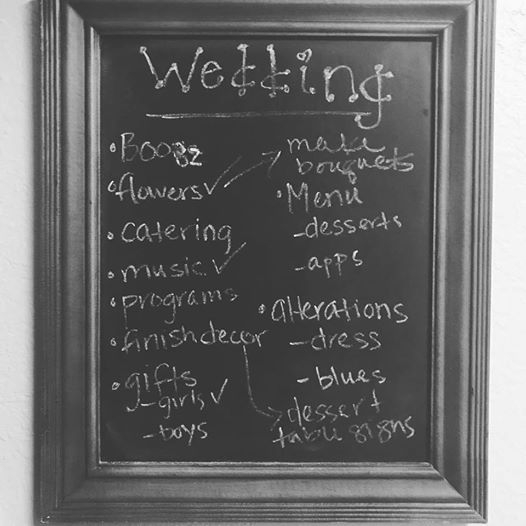 Wedding
• Booz
• flowers ✓
• catering
• music ✓
• programs
• finish decor
• gifts
- girls ✓
- boys
make
bouquets
• Menu
- desserts
- apps
• alterations
- dress
- blues
dessert
table signs